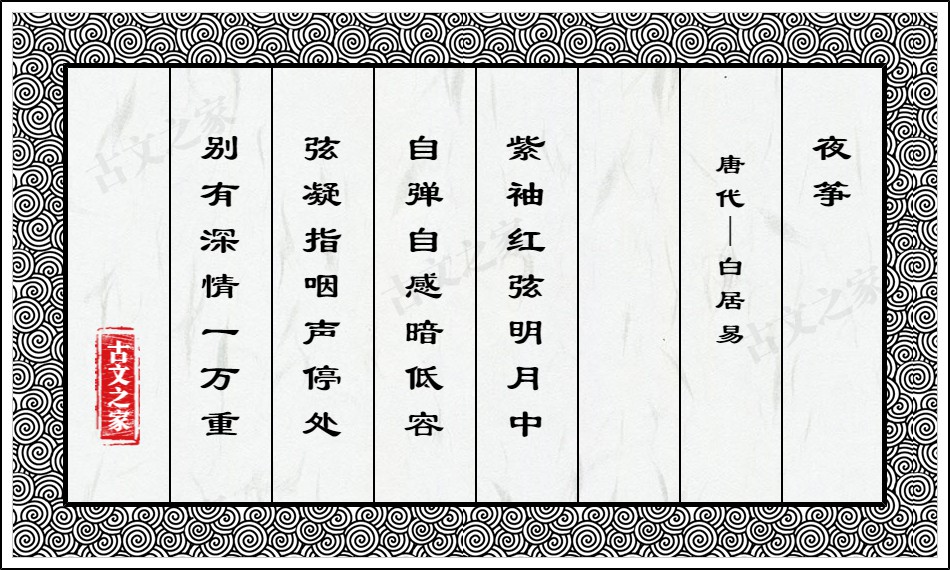 夜筝
唐代—白居易
紫袖红弦明月中
自弹自感暗低容
弦凝指咽声停处
别有深情一万重
古文之家
古文之家
古文之家
古文之家